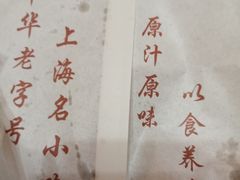 华老字号
上海名小
原汁原味
以食养